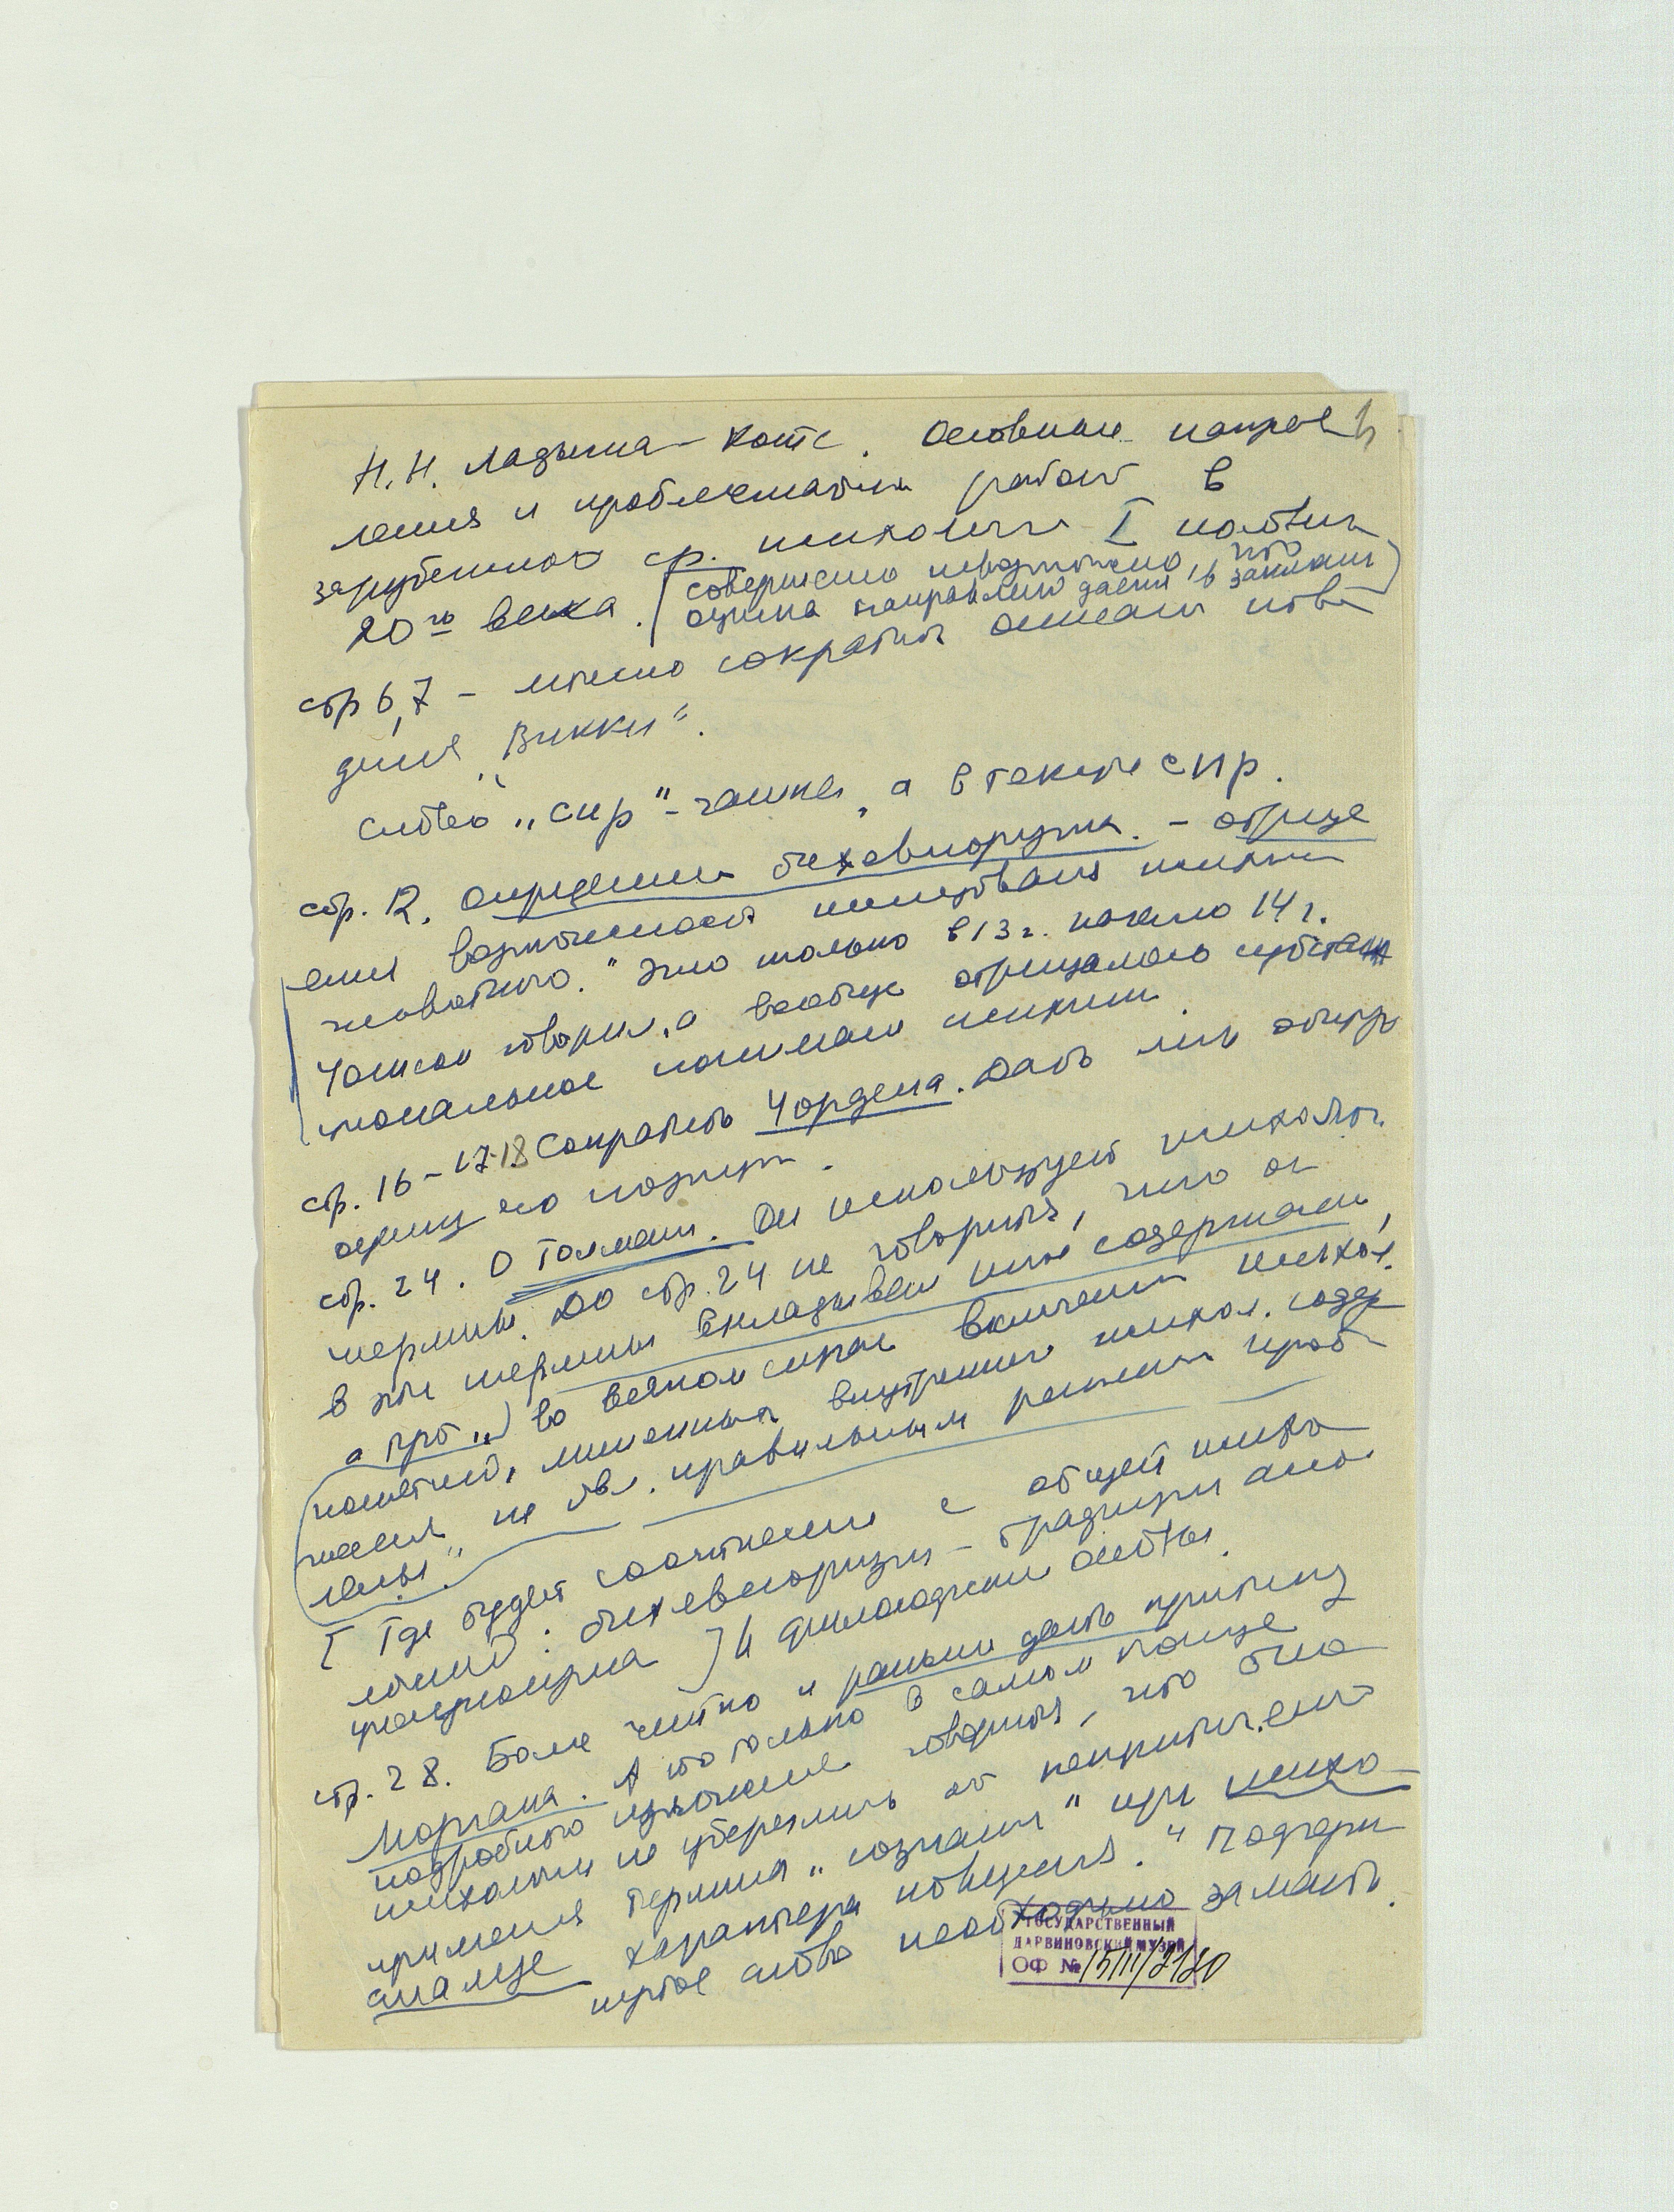 Н.Н. Ладыгина-Котс. Основные направ
ления и проблематика работ в
зарубежной ср. психологии I полови
20го века. (совершенно невозможно, что
оценка направлений дается в заключ)
стр 6,7 – можно сократить описание пове
дения "Викки".
слово "сир" - чашка, а в тексте сир.
стр. 12. определение бихевиоризма. – отрица
ение возможности исследования психики
животного." Это только в 13 г. начало 14 г.
Уотсон говорил, а вообще отрицалось субстан
циональное понимание психики.
стр. 16-17-18 Сократить Уордена. Дать лишь общую
оценку его позиции.
стр. 24. О Толмане. Он использует психолог.
термины. До стр. 24 не говорится, что он
в эти термины вкладывает иное содержание,
а прот.,) "во всяком случае включение психол.
понятий, лишенных внутреннего психол. содер
жания, не явл. правильным решением проб
лемы".
[Где будет соотнесение с общей психо
логией: бихевиоризм – традиции ассо
цианизма] и философские основы.
стр. 28. Более четко и раньше дать критику
Моргана. А то только в самом конце
подробного изложения говорится, что "эта
психологи не убереглись от некритич.
применения термина "сознание" при психо-
анализе характера поведения." Подчерк
нутое слово необходимо заменить.
ГОСУДАРСТВЕННЫЙ
ДАРВИНОВСКИЙ МУЗЕЙ
ОФ № 15111/2120